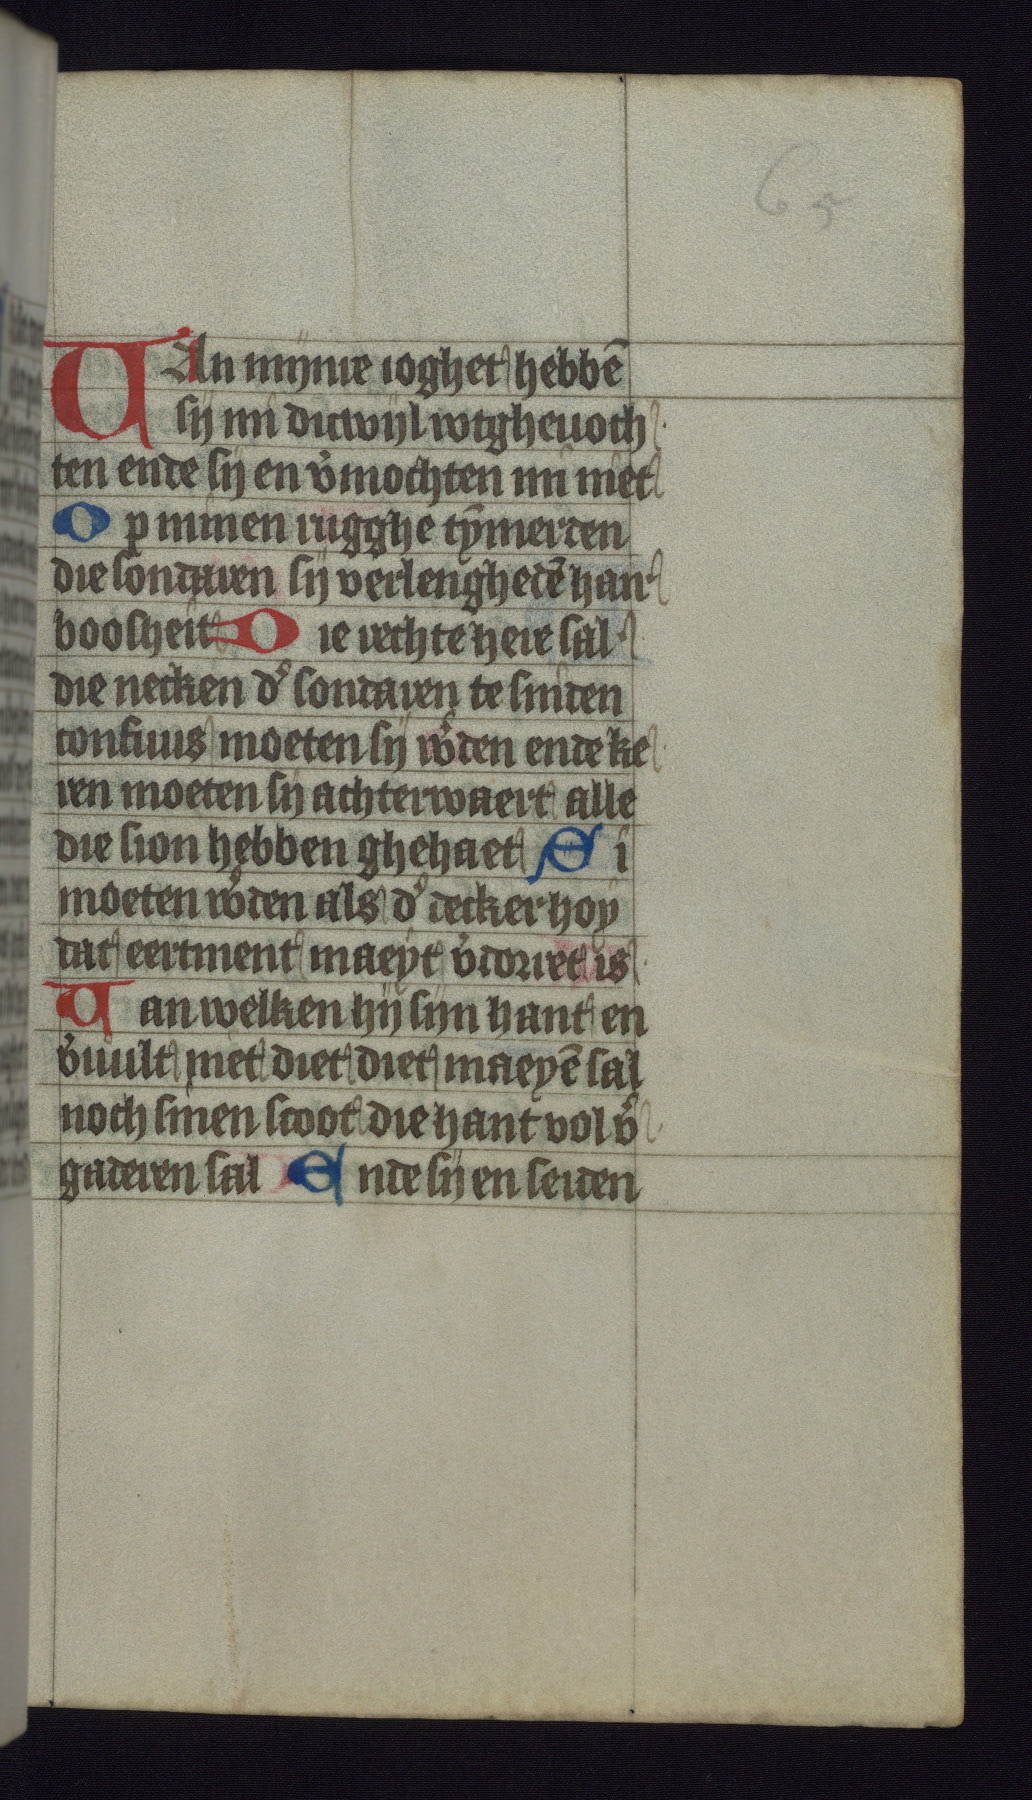 65
Van mijnre ioghet hebbē
sij mi dicwijl wtgheuoch
ten ende sij en v̉mochten mi niet
Op minen rugghe tȳmerden
die sondaren sij verlenghedē haer
boosheit Die rechte here sal
die necken d̕ sondaren te sniden
confuus moeten sij w̕den ende ke
ren moeten sij achterwaert alle
die sion hebben ghehaet Si
moeten w̕den als d̕ decker hoy
dat eertment maeyt v̉dorret is
Uan welken hij sijn hant en
v̉uult met diet diet maeyē sal
noch sinen scoot die hant vol v̉
gaderen sal Ende sij en seiden